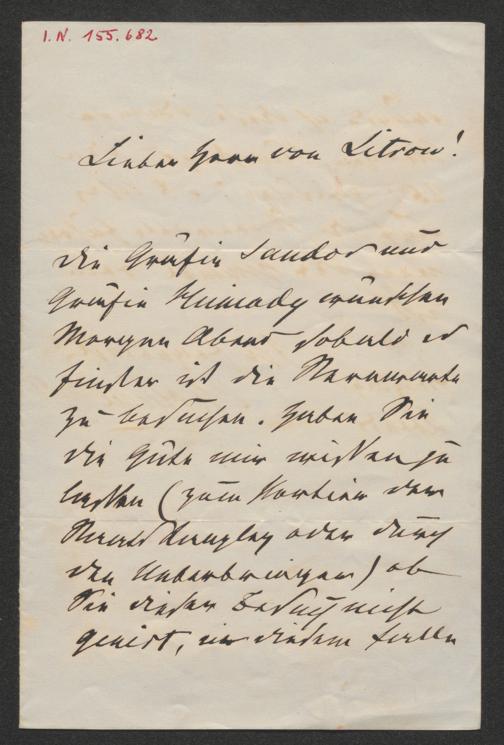 I.N. 155.682
Lieber Herr von Litrow!
Die Gräfin Sandor und
Gräfin Huniady wünschen
Morgen Abend sobald es
finster ist die Sternwarte
zu besuchen. Haben Sie
die Güte mir wissen zu
lassen (zum Portier der
Staatskanzley oder durch
den Ueberbringer) ob
Sie dieser Besuch nicht
genirt, in diesem Falle